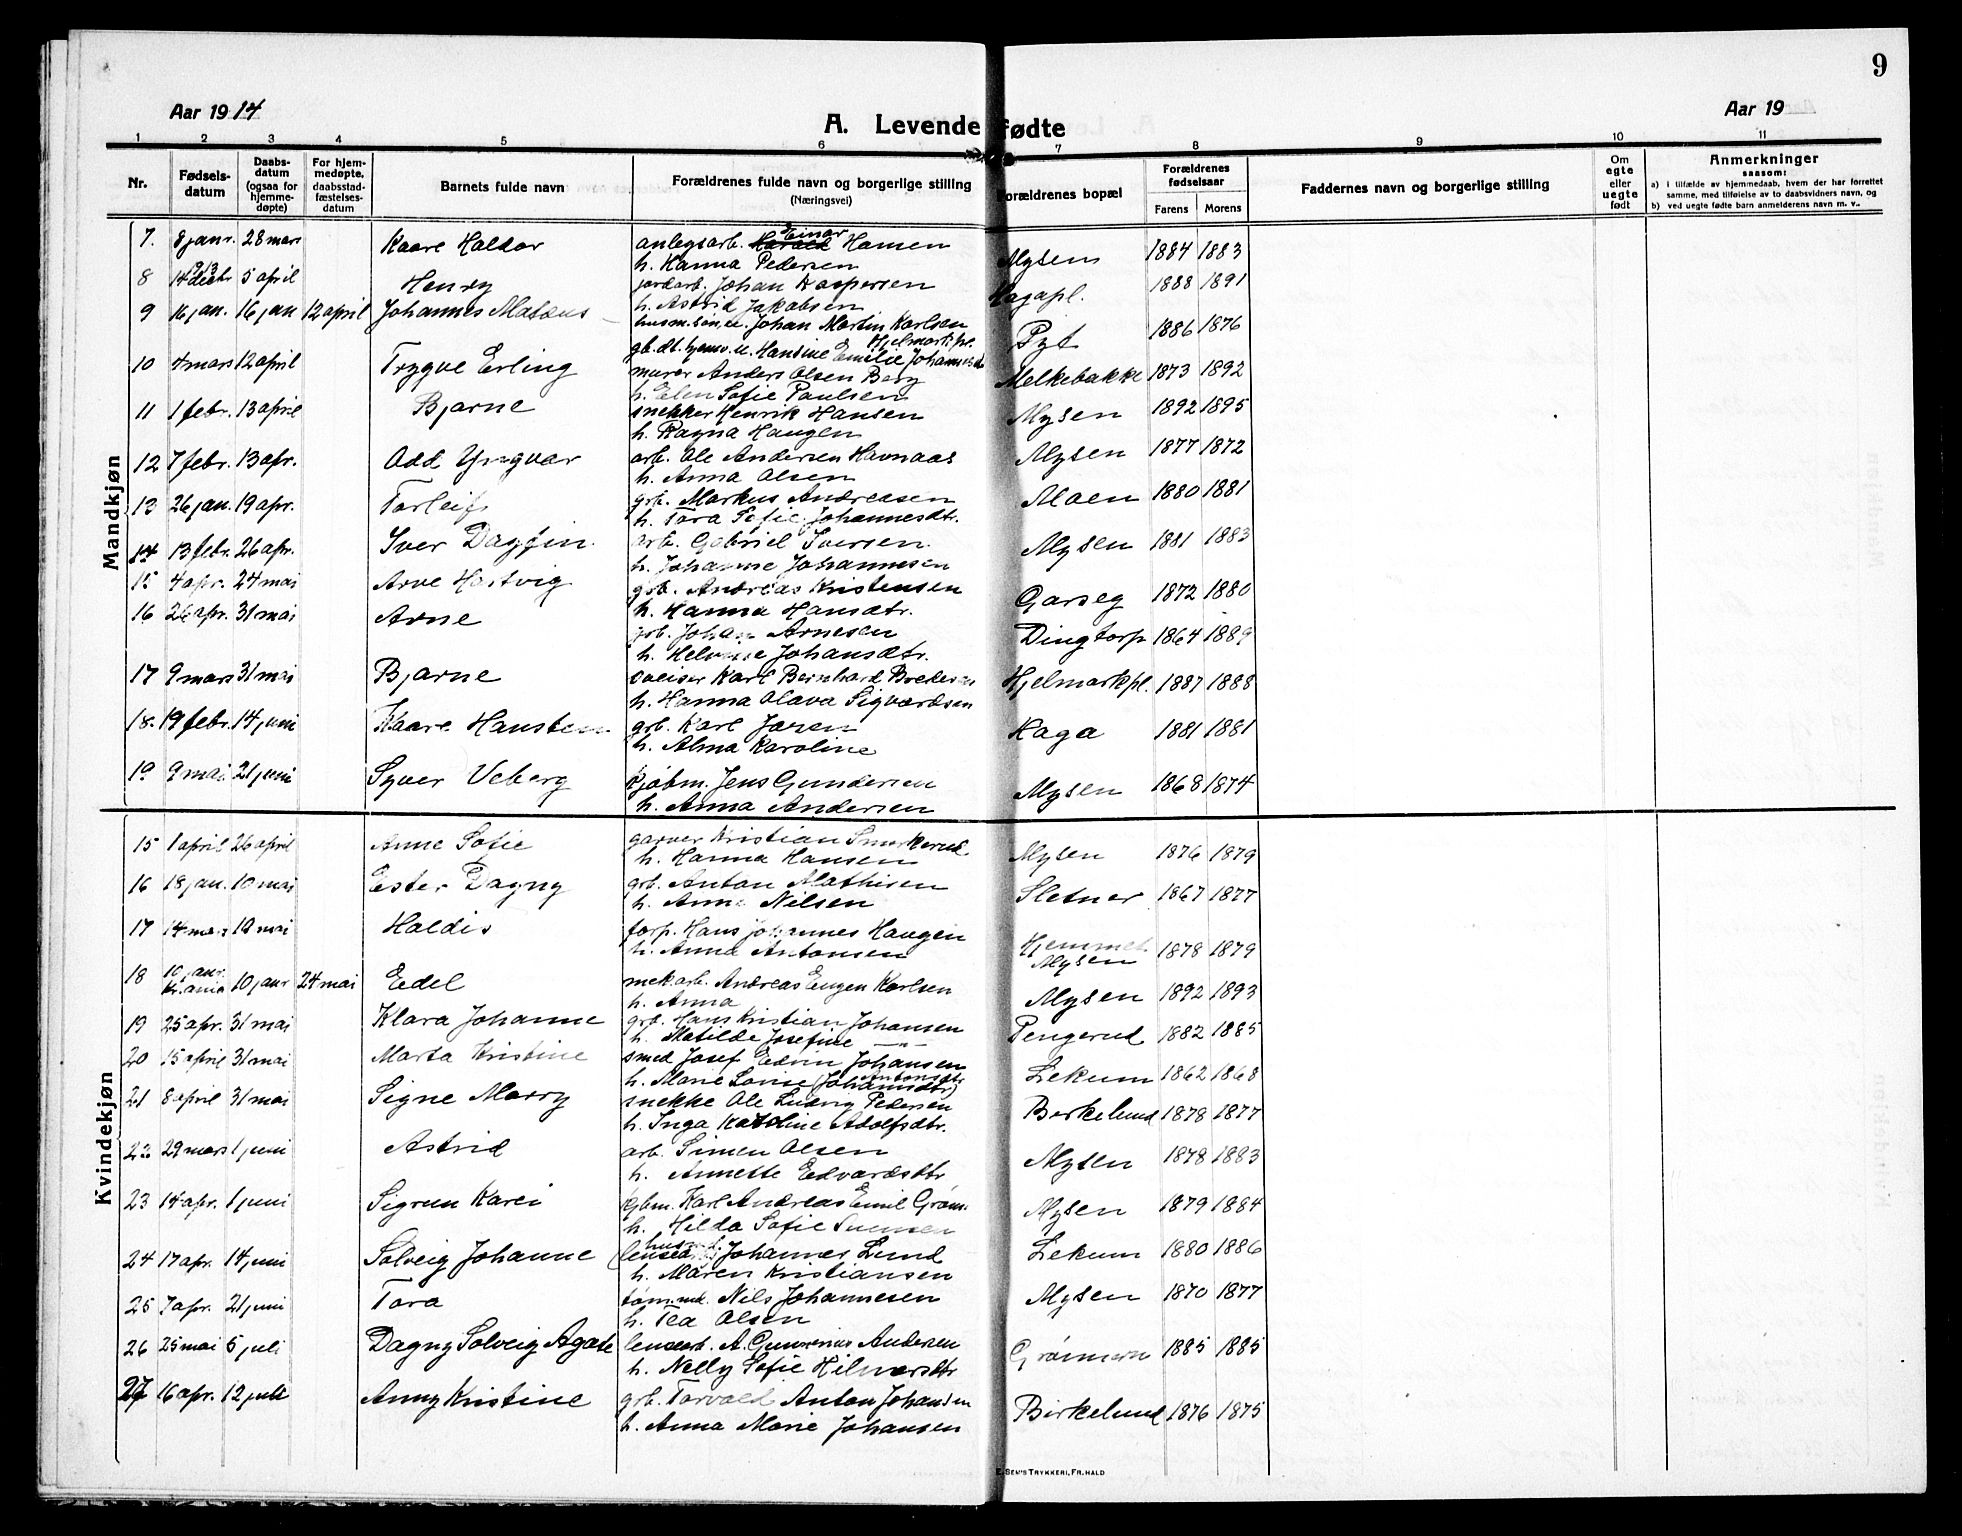 9
Aar 1914
Aar 19
A. Levende fødte
1 2 3 4 5 6 7 8 9 10 11
Nr.
Fødsels-
datum
Daabs-
datum
(ogsaa for
hjemme-
døpte)
For hjem-
medøpte,
daabsstad-
fæstelses-
datum
Barnets fulde navn
Forældrenes fulde navn og borgerlige stilling
(Næringsvei)
Forældrenes bopæl
Forældrenes
fødselsaar
Farens Morens
Faddernes navn og borgerlige stilling
Om
egte
eller
uegte
født
Anmerkninger
saasom:
a) i tilfælde av hjemmedaab, hvem der har forrettet
samme, med tilføielse av to daabsvidners navn, og
b) ved uegte fødte barn anmelderens navn m. v..
Mandkjøn
7. 8 janr. 28 mars Kaare Haldor anlegsarb. Harald Einar Hansen Mysen 1884 1883
h. Hanna Pedersen
8 14 decbr 1913 5 april Henry jordarb. Johan Kaspersen Hagapl. 1888 1891
h. Astrid Jakobsen
9 16 jan. 16 jan 12 april Johannes husm.søn, Johan Martin Karlsen Hjelmarkpl. 1886 1876
Hansine Emilie
10 4 mars 12 april Trygve Erling murer Anders Olsen Berg Melkebakke 1873 1892
h. Elen Sofie Paulsen
11 1 febr. 13 april Bjarne snekker Henrik Hansen Mysen 1892 1895
h. Ragna Haugen
12 7 febr. 13 apr. Odd Yngvar arb. Ole Andersen Havnaas Mysen 1877 1872
h. Anna Olsen
13 26 jan. 19 apr. Torleif grb. Markus Andreasen Moen 1880 1881
h. Tora Sofie Johannesdt.
14 13 febr. 26 apr. Iver Dagfin arb. Gabriel Iversen Mysen 1881 1883
h. Johanne Johannesen
15 4 apr. 24 mai Arve Hartvig grb. Andreas Kristensen Garseg 1872 1880
h. Hanna Hansdtr.
16 26 apr. 31 mai Arne grb. Johan Arnesen Dingtorp 1864 1889
h. Johansdtr.
17 9 mars 31 mai Bjarne sveiser Karl Bernhard Bredesen Hjelmarkpl. 1887 1888
h. Hanna Olava Sigvardsen
18. 19 febr. 14 juni Kaare Hansten grb. Karl Jozen Haga 1881 1881
h. Alma Karoline
19 9 mai 21 juni Syver Veberg kjøbm. Jens Gundersen Mysen 1868 1874
h. Anna Andersen
Kvindekjøn
15 1 april 26 april Anne Sofie garver Kristian Smerkerud Mysen 1876 1879
h. Hanna Hansen
16 18 jan. 10 mai Ester Dagny grb. Anton Mathisen Sletner 1867 1877
h. Anna Nilsen
17 14 mars 10 mai Haldis torp. Hans Johannes Haugen Hjemmet Mysen 1878 1879
h. Anna Antonsen
18 10 janr. Kr.ania 10 janr 24 mai Edel mek.arb. Andreas Eugen Karlsen Mysen 1892 1893
h. Anna
19 25 apr. 31 mai Klara Johanne grb. Hans Kristian Johansen Pengerud 1882 1885
h. Matilde Josefine —"—
20 15 april 31 mai Marta Kristine smed Josef Edvin Johansen Lekum 1862 1868
h. Marie Antonsdtr (Johannsdtr)
21 8 april 31 mai Signe Marry snekke Ole Ludvig Pedersen Birkelund 1878 1877
h. Inga Karoline Adolfsdtr.
22 29 mars 1 juni Astrid arb. Simen Olsen Mysen 1878 1883
h. Annette Edvardsdtr
23 14 apr. 1 juni Sigrun Karei kjbm. Karl Andreas Emil Grøm. Mysen 1879 1884
h. Hilda Sofie
24 17 apr. 14 juni Solveig Johanne Johannes Lund Lekum 1880 1886
h. Maren Kristiansen
25 7 apr. 21 juni Tora tøm.md. Nils Johannesen Mysen 1870 1877
h. Tea Olsen
26 25 mai 5 juli Dagny Solveig Agate lensarb. A. Gunerius Andersen 1885 1885
h. Nelly Sofie Hilmersdtr
27 16 apr. 12 juli Anny Kristine grb. Torvald Anton Johansen Birkelund 1876 1875
h. Anna Marie Johansen
E. SEM'S TRYKKERI, FR.HALD